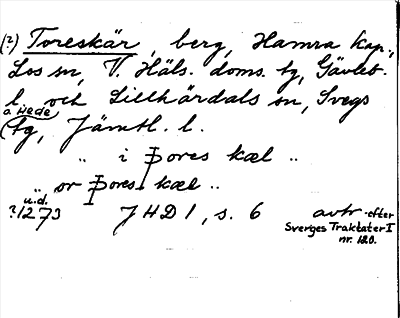 (?) Toreskär, berg, Hamra kap.,
Los sn, V. Häls. doms. tg, Gävleb.
l. och Lillhärdals sn, Svegs
a. Hede
tg, Jämtl. l.
" i Þores kæl ..
.. or Þores kæl ..
u.d.
?1273 JHD 1, s. 6 avtr. efter
Sverges Traktater I
nr. 120.